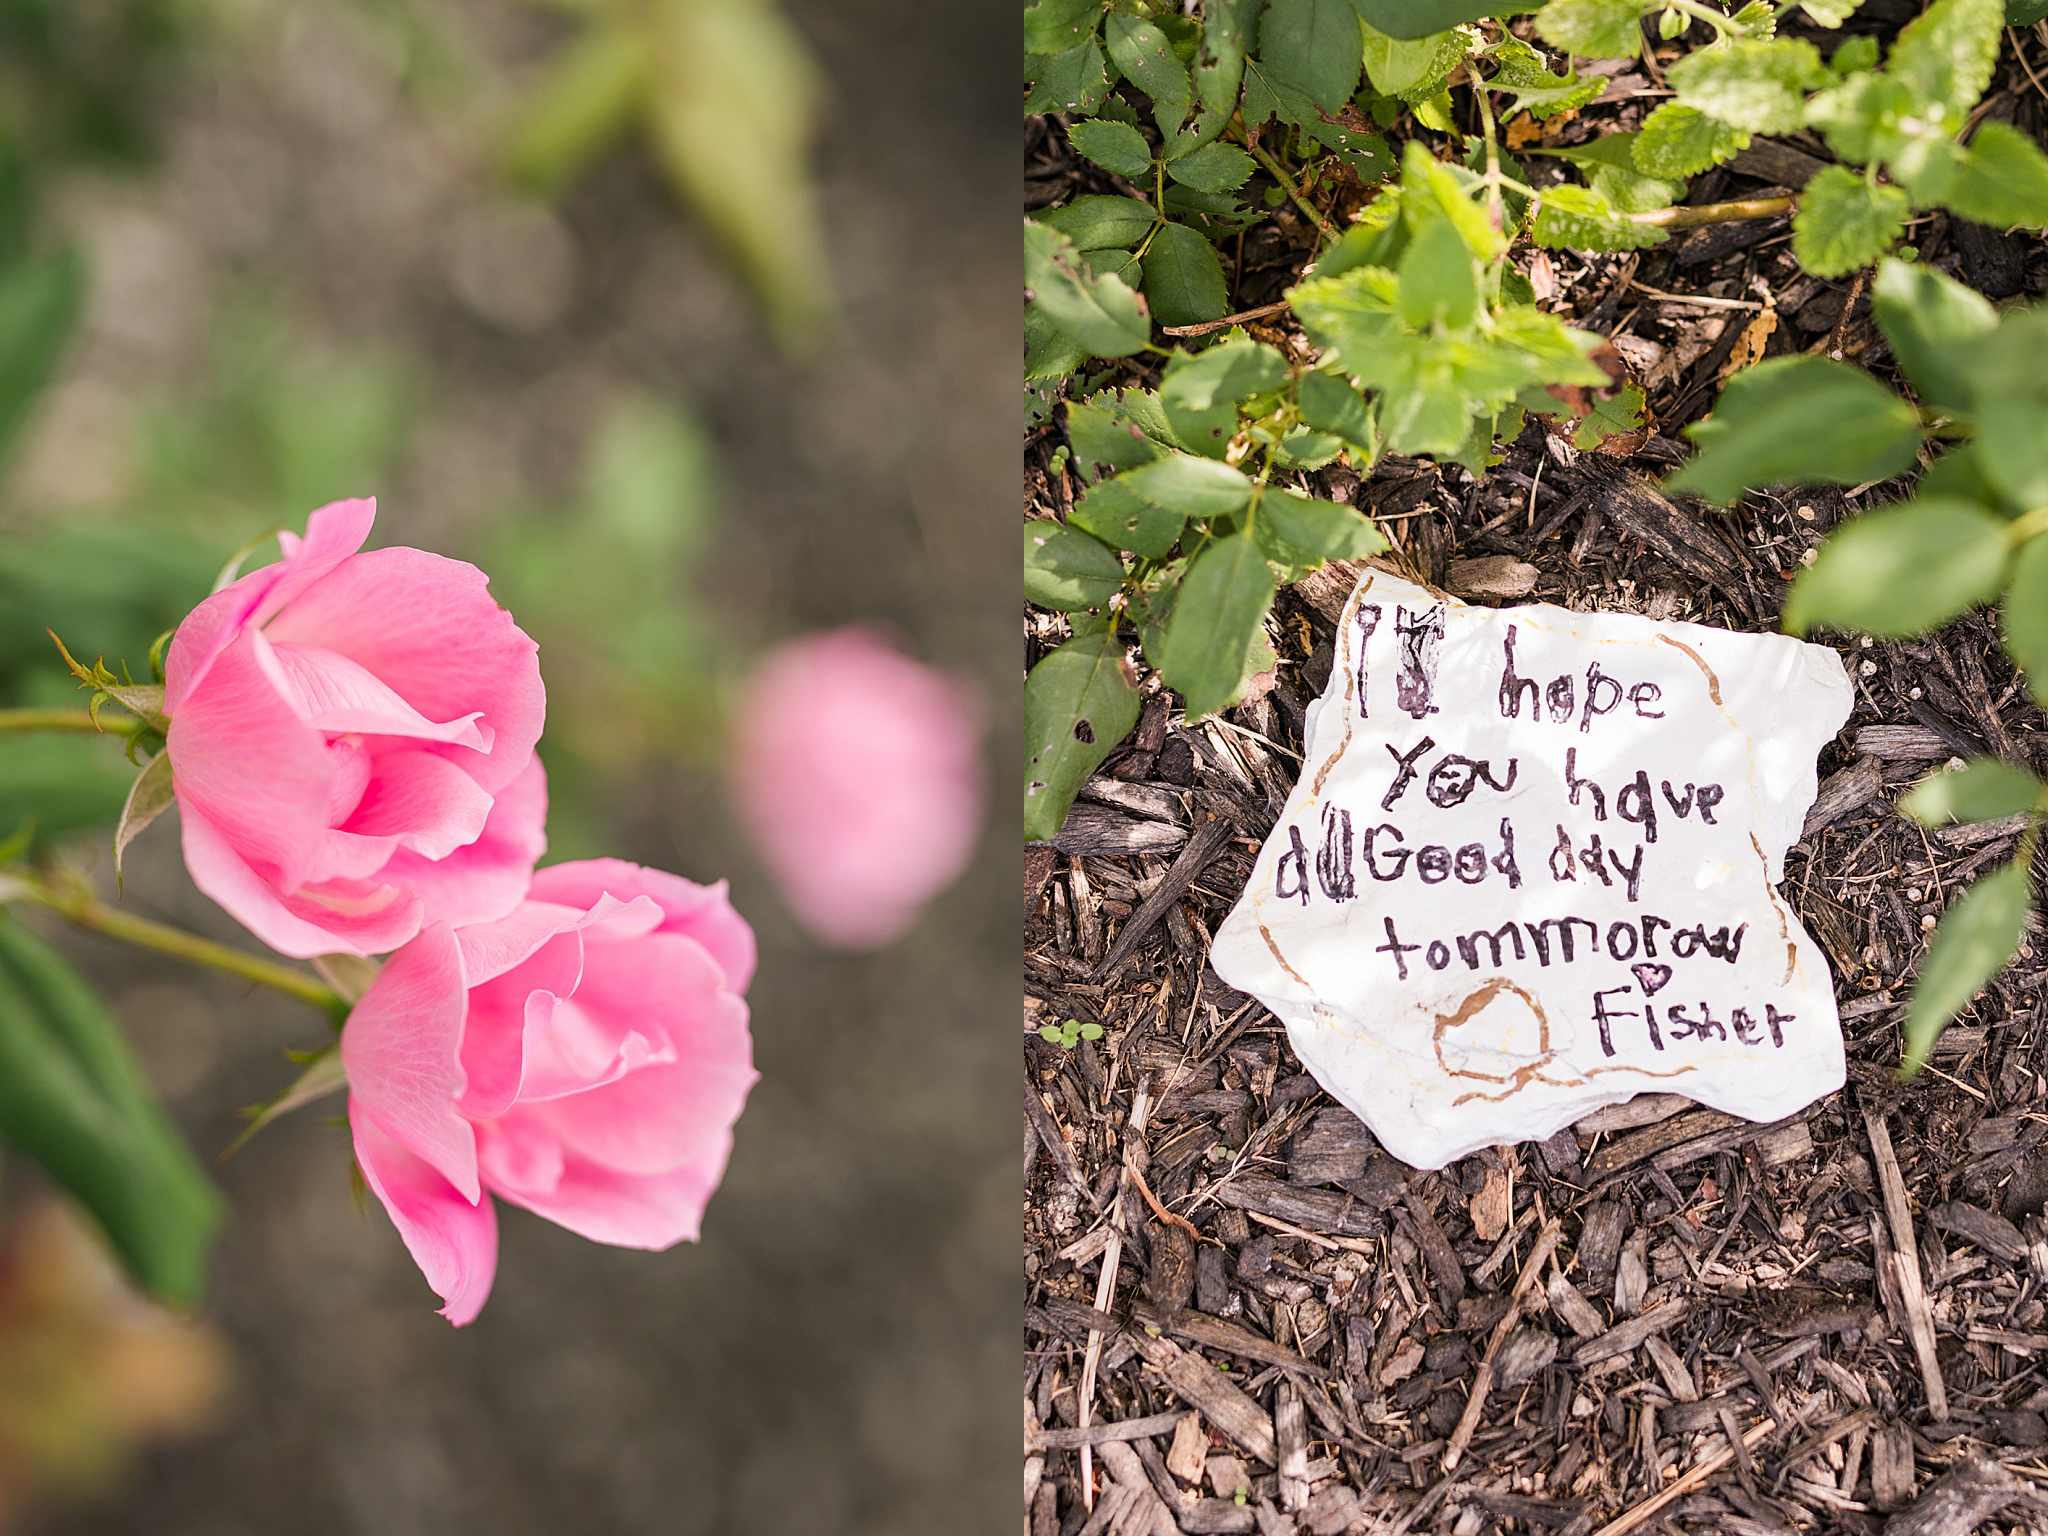 i'll hope
You have
a Good day
tommorow
Fisher